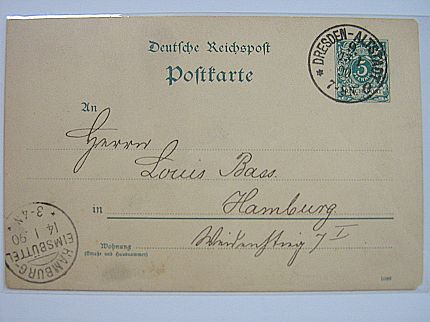 Deutsche Reichspost
Postkarte
* DRESDEN-ALTSTADT
5
An
Herrn
Louis Bass.
in Hamburg
Wohnung
(Straße und Hausnummer)
Weidenstieg 7 I
HAMBURG-
EIMSBÜTTEL
14 1 90
3-4 N